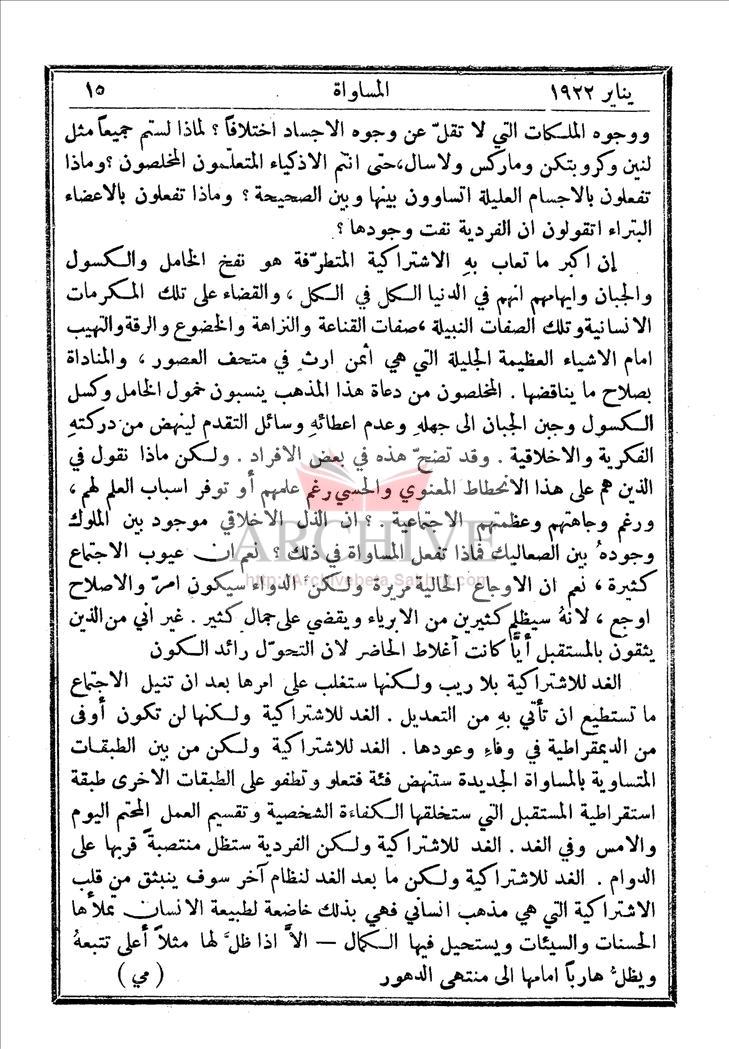 يناير ١٩٢٢ المساواة ١٥
ووجوه الملكات التي لا تقلّ عن وجوه الاجساد اختلافاً ؟ لماذا لستم جميعاً مثل
لنين وكروبتكن وماركس ولاسال،حتى انتم الاذكياء المتعلّمون المخلصون ؟وماذا
تفعلون بالاجسام العليلة اتساوون بينها وبين الصحيحة ؟ وماذا تفعلون بالاعضاء
البتراء اتقولون ان الفردية نفت وجودها ؟
إن اكبر ما تعاب بهِ الاشتراكية المتطرّفة هو نفخ الخامل والكسول
والجبان وايهامهم انهم في الدنيا الكل في الكل ، والقضاء على تلك المكرمات
الانسانية وتلك الصفات النبيلة ، صفات القناعة والنزاهة والخضوع والرقة والتهيب
امام الاشياء العظيمة الجليلة التي هي أثمن ارثٍ في متحف العصور ، والمناداة
بصلاح ما يناقضها . المخلصون من دعاة هذا المذهب ينسبون خمول الخامل وكسل
الكسول وجبن الجبان الى جهلهِ وعدم اعطائهِ وسائل التقدم لينهض من دركتهِ
الفكرية والاخلاقية . وقد تضحّ هذه في بعض الافراد . ولكن ماذا نقول في
الذين هم على هذا الانحطاط المعنوي والحسي رغم علمهم أو توفر اسباب العلم لهم ،
ورغم وجاهتهم وعظمتهم الاجتماعية . ؟ ان الذل الاخلاقي موجود بين الملوك
وجودهُ بين الصعاليك فماذا تفعل المساواة في ذلك ؟ نعم ان عيوب الاجتماع
كثيرة ، نعم ان الاوجاع الحالية مريرة ولكن الدواء سيكون امرّ والاصلاح
اوجع ، لانهُ سيظلم كثيرين من الابرياء ويقضي على جمال كثير . غير اني من الذين
يثقون بالمستقبل أيًّا كانت أغلاط الحاضر لان التحوّل رائد الكون
الغد للاشتراكية بلا ريب ولكنها ستغلب على امرها بعد ان تنيل الاجتماع
ما تستطيع ان تأتي بهِ من التعديل . الغد للاشتراكية ولكنها لن تكون أوفى
من الديمقراطية في وفاءِ وعودها . الغد للاشتراكية ولكن من بين الطبقات
المتساوية بالمساواة الجديدة ستنهض فئة فتعلو وتطفو على الطبقات الاخرى طبقة
استقراطية المستقبل التي ستخلقها الكفاءة الشخصية وتقسيم العمل المحتم اليوم
والامس وفي الغد . الغد للاشتراكية ولكن الفردية ستظل منتصبةً قربها على
الدوام . الغد للاشتراكية ولكن ما بعد الغد لنظام آخر سوف ينبثق من قلب
الاشتراكية التي هي مذهب انساني فهي بذلك خاضعة لطبيعة الانسان تملأها
الحسنات والسيئات ويستحيل فيها الكمال – الاَّ اذا ظلَّ لها مثلاً أعلى تتبعهُ
ويظلُّ هارباً امامها الى منتهى الدهور (مي)
ARCHIVE
http://Archivebeta.Sakhrit.com